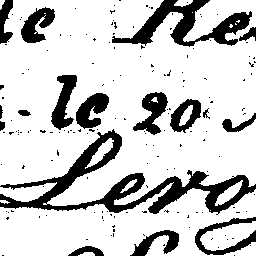 le Re
le 20
Lero